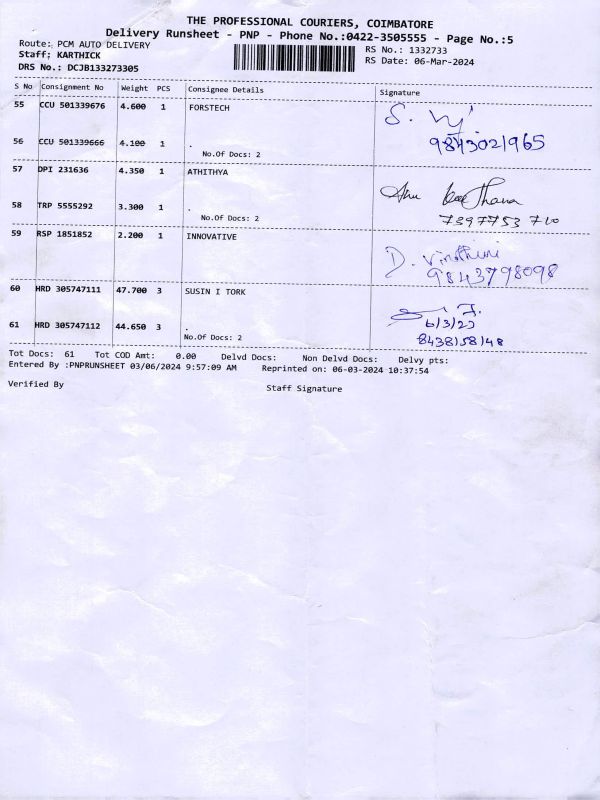 THE PROFESSIONAL COURIERS, COIMBATORE
Delivery Runsheet - PNP - Phone No.:0422-3505555 - Page No.:5
Route: PCM AUTO DELIVERY RS No.: 1332733
Staff: KARTHICK RS Date: 06-Mar-2024
DRS No.: DCJB133273305
S No Consignment No Weight PCS Consignee Details Signature
55 CCU 501339676 4.600 1 FORSTECH
9843021965
56 CCU 501339666 4.100 1 .
No.Of Docs: 2
57 DPI 231636 4.350 1 ATHITHYA
58 TRP 5555292 3.300 1 .
No.Of Docs: 2 7397753 710
59 RSP 1851852 2.200 1 INNOVATIVE
D. Vinothini
9843798098
60 HRD 305747111 47.700 3 SUSIN I TORK
61 HRD 305747112 44.650 3 .
No.Of Docs: 2 8438158148
Tot Docs: 61 Tot COD Amt: 0.00 Delvd Docs: Non Delvd Docs: Delvy pts:
Entered By :PNPRUNSHEET 03/06/2024 9:57:09 AM Reprinted on: 06-03-2024 10:37:54
Verified By Staff Signature